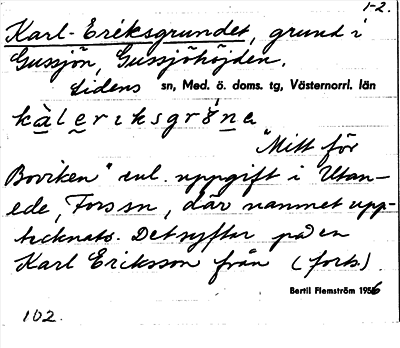 1-2.
Karl-Eriksgrundet, grund i
Gussjön, Gussjöhöjden.
Lidens sn, Med. ö. doms. tg, Västernorrl. län
kàleriksgrö́na
"Mitt för
Boviken" enl. uppgift i Utan-
ede, Fors sn, där namnet upp-
tecknats. Det syftar på en
Karl Eriksson från (forts.)
Bertil Flemström 1956
102.